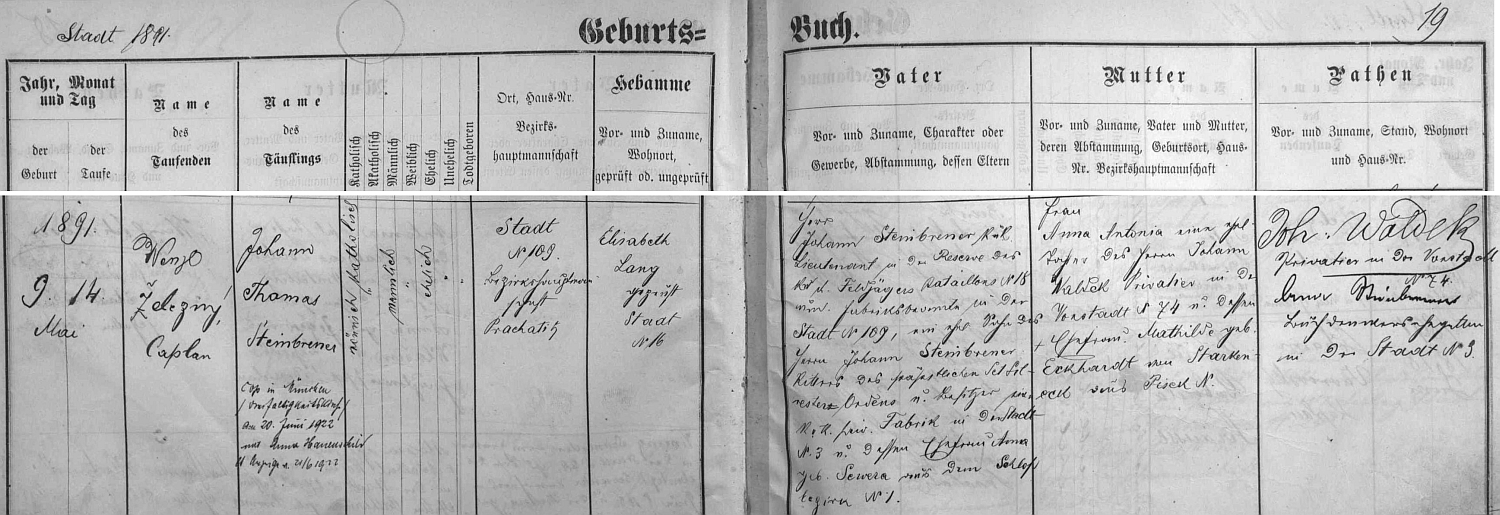 Stadt 1891.
Geburts=
Buch.
19
Jahr, Monat
und Tag
der
Geburt
der
Taufe
Name
des
Taufenden
Name
des
Täuflings
Katholisch
Akatholisch
Männlich
Weiblich
Ehelich
Unehelich
Todtgeboren
Ort, Haus-Nr.
Bezirks-
hauptmannschaft
Hebamme
Vor- und Zuname,
Wohnort,
geprüft od. ungeprüft
Vater
Vor- und Zuname, Charakter oder
Gewerbe, Abstammung, dessen Eltern
Mutter
Vor- und Zuname, Vater und Mutter,
deren Abstammung, Geburtsort, Haus-
Nr. Bezirkshauptmannschaft
Pathen
Vor- und Zuname, Stand, Wohnort
und Haus-Nr.
1891.
9. 14.
Mai
Wenzl
Železný
Caplan
Johann
Thomas
Steinbrener
Cop. in München
am 20. Juni 1922
mit Anna
römisch katholisch
männlich
ehelich
Stadt
N 109.
Bezirkshauptmann
schaft
Prachatitz
Elisabeth
Lang
geprüft
Stadt
N 16
Herr
Johann Steinbrener k. k.
Lieutenant in der Reserve des
k. k. Feldjäger Bataillons N 18
Fabriksbeamte in der
Stadt N 109, ein ehel. Sohn des
Herrn Johann Steinbrener
Ritters des päpstlichen St. Sil-
vester Ordens u. Besitzer einer
k. k. priv. Fabrik in der Stadt
N 3 u. dessen Ehefrau Anna
geb. Sewera aus dem Schloß
bezirk N 1.
Frau
Anna Antonia eine ehel.
Tochter des Herrn Johann
Waldek Privatier in der
Vorstadt N 74 u. dessen
Ehefrau Mathilde geb.
Eckhardt von Starken-
eck aus Pisek N.
Joh. Waldek
Privatier in der Vorstadt
N 74.
Anna Steinbrener
Buchdruckersgattin
in der Stadt N 3.